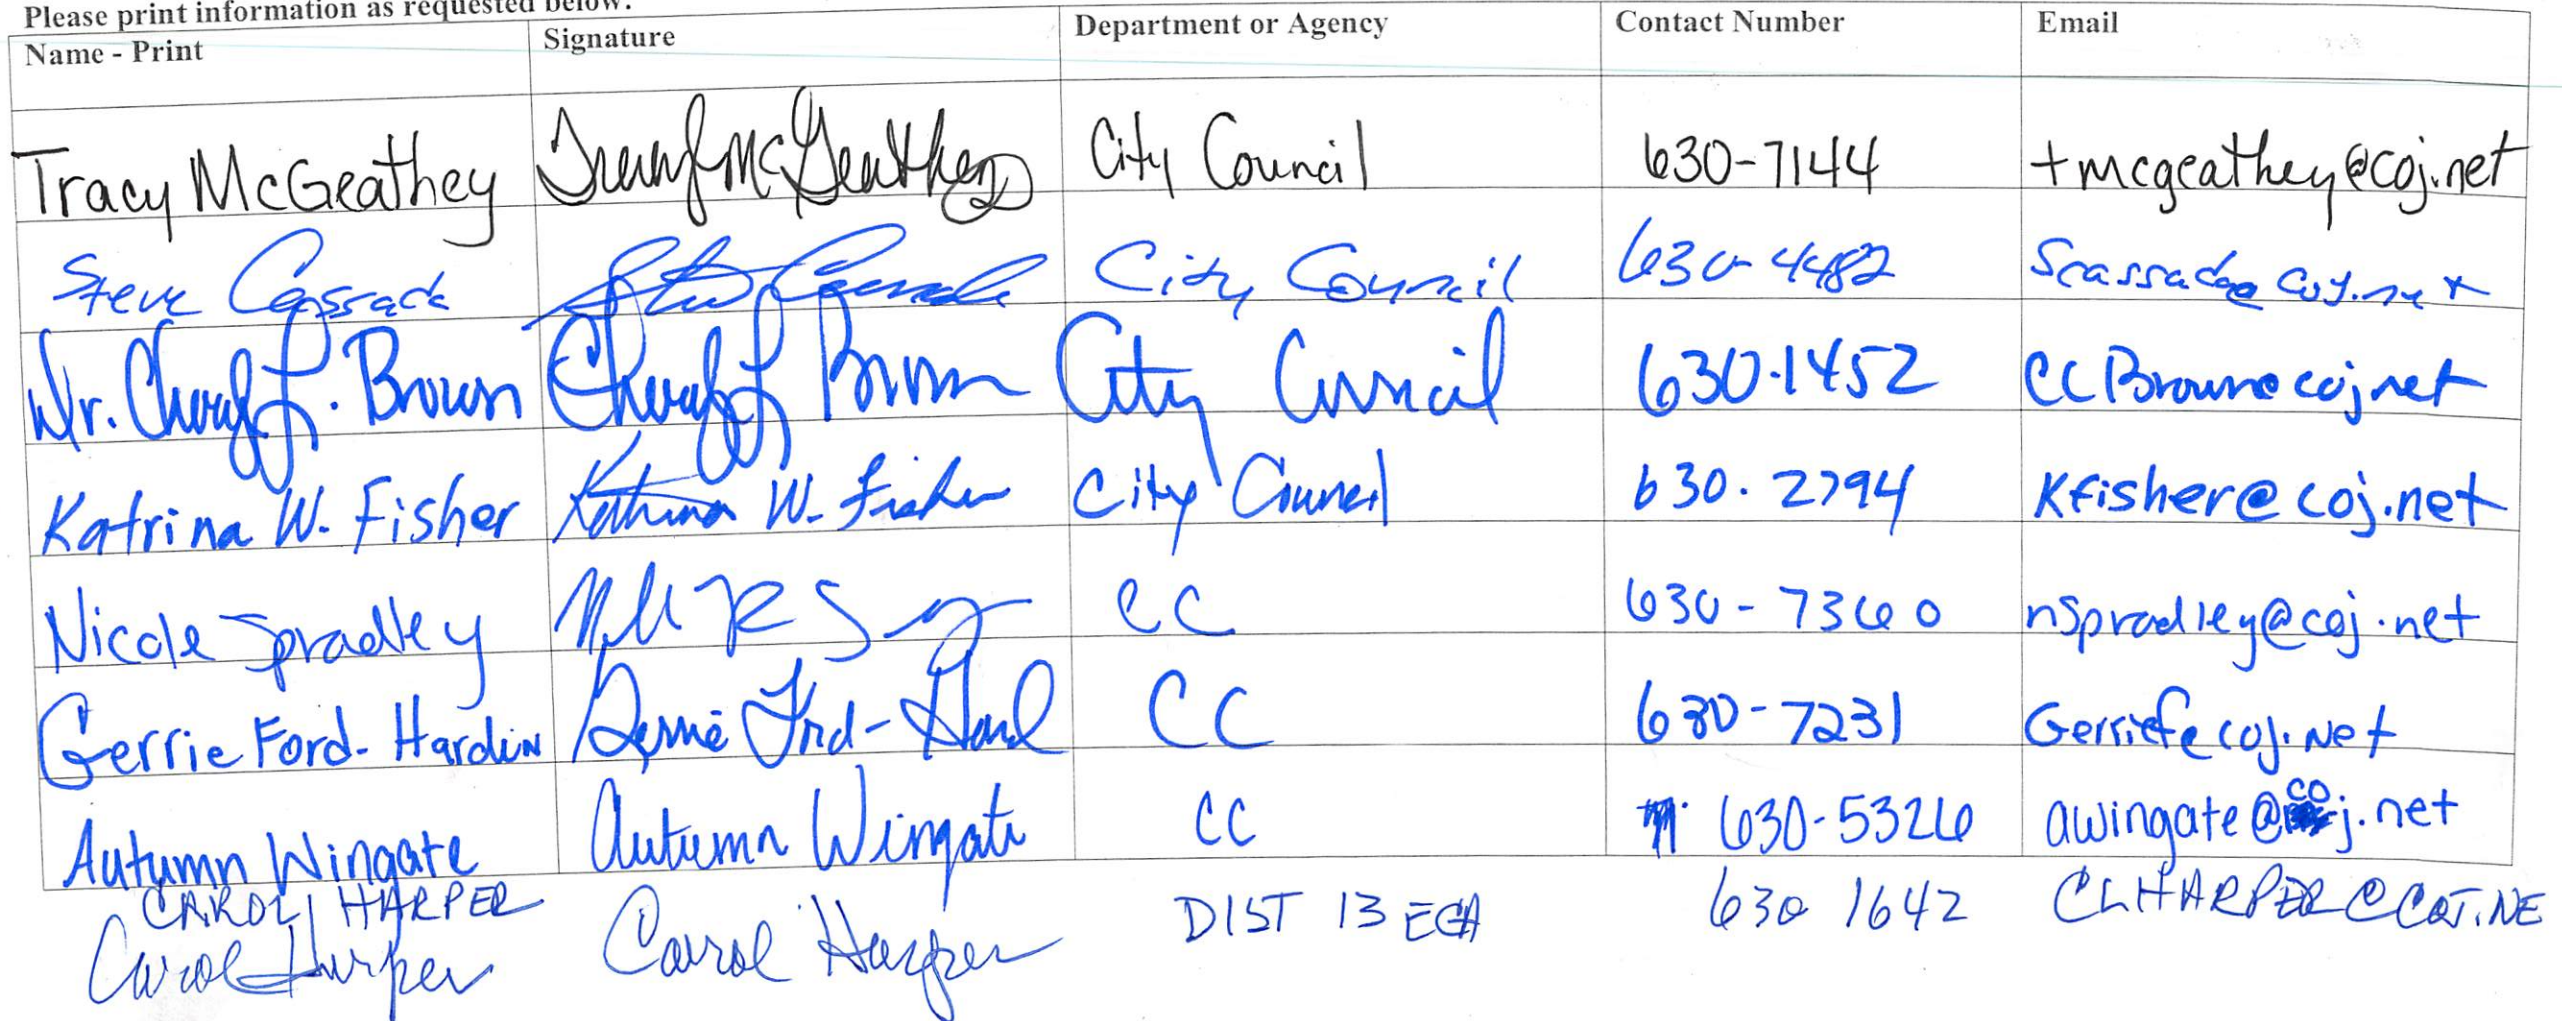 Please print information as requested below.
Name - Print Signature Department or Agency Contact Number Email
Tracy McGeathey Tracy McGeathey City Council 630-7144 tmcgeathey@coj.net
Steve Cassada Steve Cassada City Council 630-4482 Scassada@coj.net
Dr. Cheryl L. Brown Cheryl L Brown City Council 630-1452 CCBrown@coj.net
Katrina W. Fisher Katrina W. Fisher City Council 630.2794 Kfisher@coj.net
Nicole Spradley CC 630-7360 nspradley@coj.net
Gerrie Ford-Hardin Gerrie Ford-Hard CC 630-7231 Gerrief@coj.Net
Autumn Wingate Autumn Wingate CC 630-5326 awingate@coj.net
CAROL HARPER DIST 13 ECA 630 1642 CLHARPER@COJ.NE
Carol Harper Carol Harper